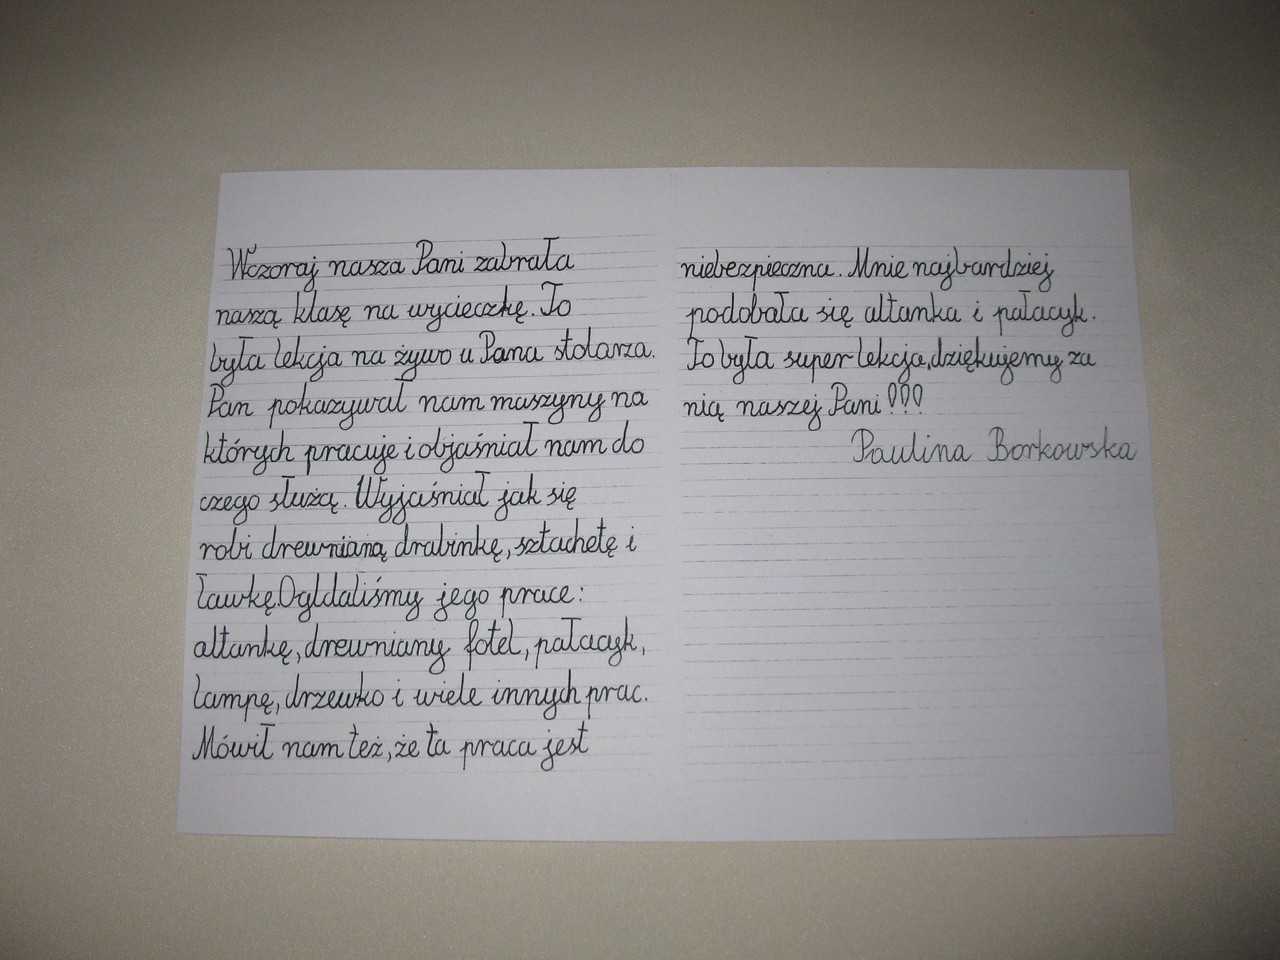 Wczoraj nasza Pani zabrała
naszą klasę na wycieczkę. To
była lekcja na żywo u Pana stolarza.
Pan pokazywał nam maszyny na
których pracuje i objaśniał nam do
czego służą. Wyjaśniał jak się
robi drewnianą drabinkę, sztachetę i
ławkę. Ogldaliśmy jego prace:
altankę, drewniany fotel, pałacyk,
lampę, drzewko i wiele innych prac.
Mówił nam też, że ta praca jest
niebezpieczna. Mnie najbardziej
podobała się altanka i pałacyk.
To była super lekcja, dziękujemy za
nią naszej Pani!!!
Paulina Borkowska